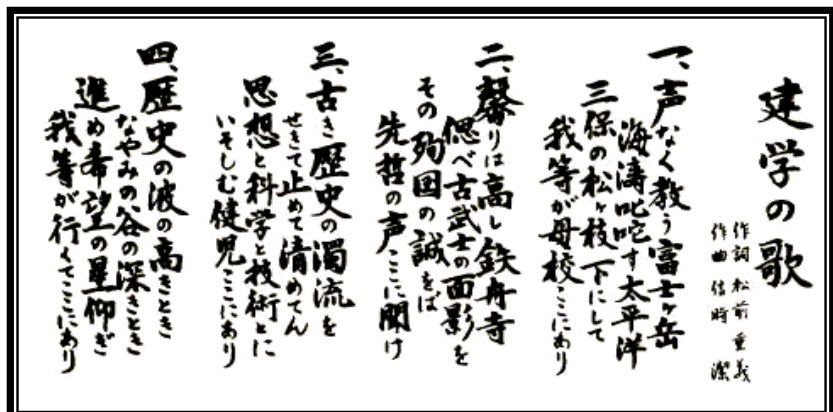 建学の歌
作詞 松前 重義
作曲 信時 潔
一、声なく教う富士ヶ岳
海濤叱咤す太平洋
三保の松ヶ枝下にして
我等が母校ここにあり
二、馨りは高し鉄舟寺
偲べ古武士の面影を
その殉国の誠をば
先哲の声ここに聞け
三、古き歴史の濁流を
せきて止めて清めてん
思想と科学と技術とに
いそしむ健児ここにあり
四、歴史の波の高きとき
なやみの谷の深きとき
進め希望の星仰ぎ
我等が行くてここにあり